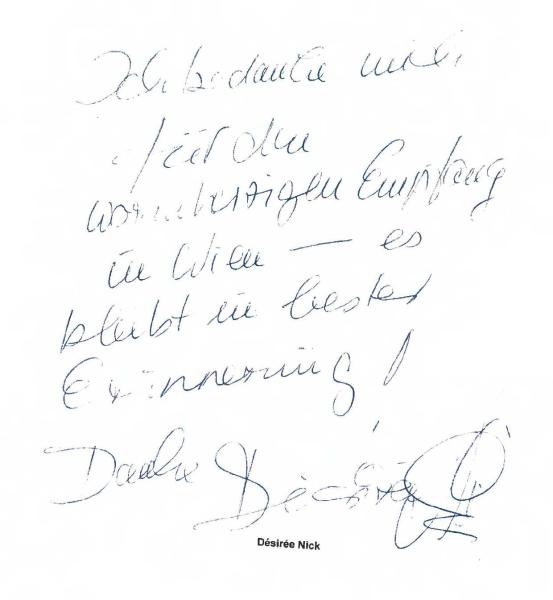 Ich bedanke mich
für den
warmherzigen Empfang
in Wien — es
bleibt in bester
Erinnerung!
Danke Désirée
Désirée Nick